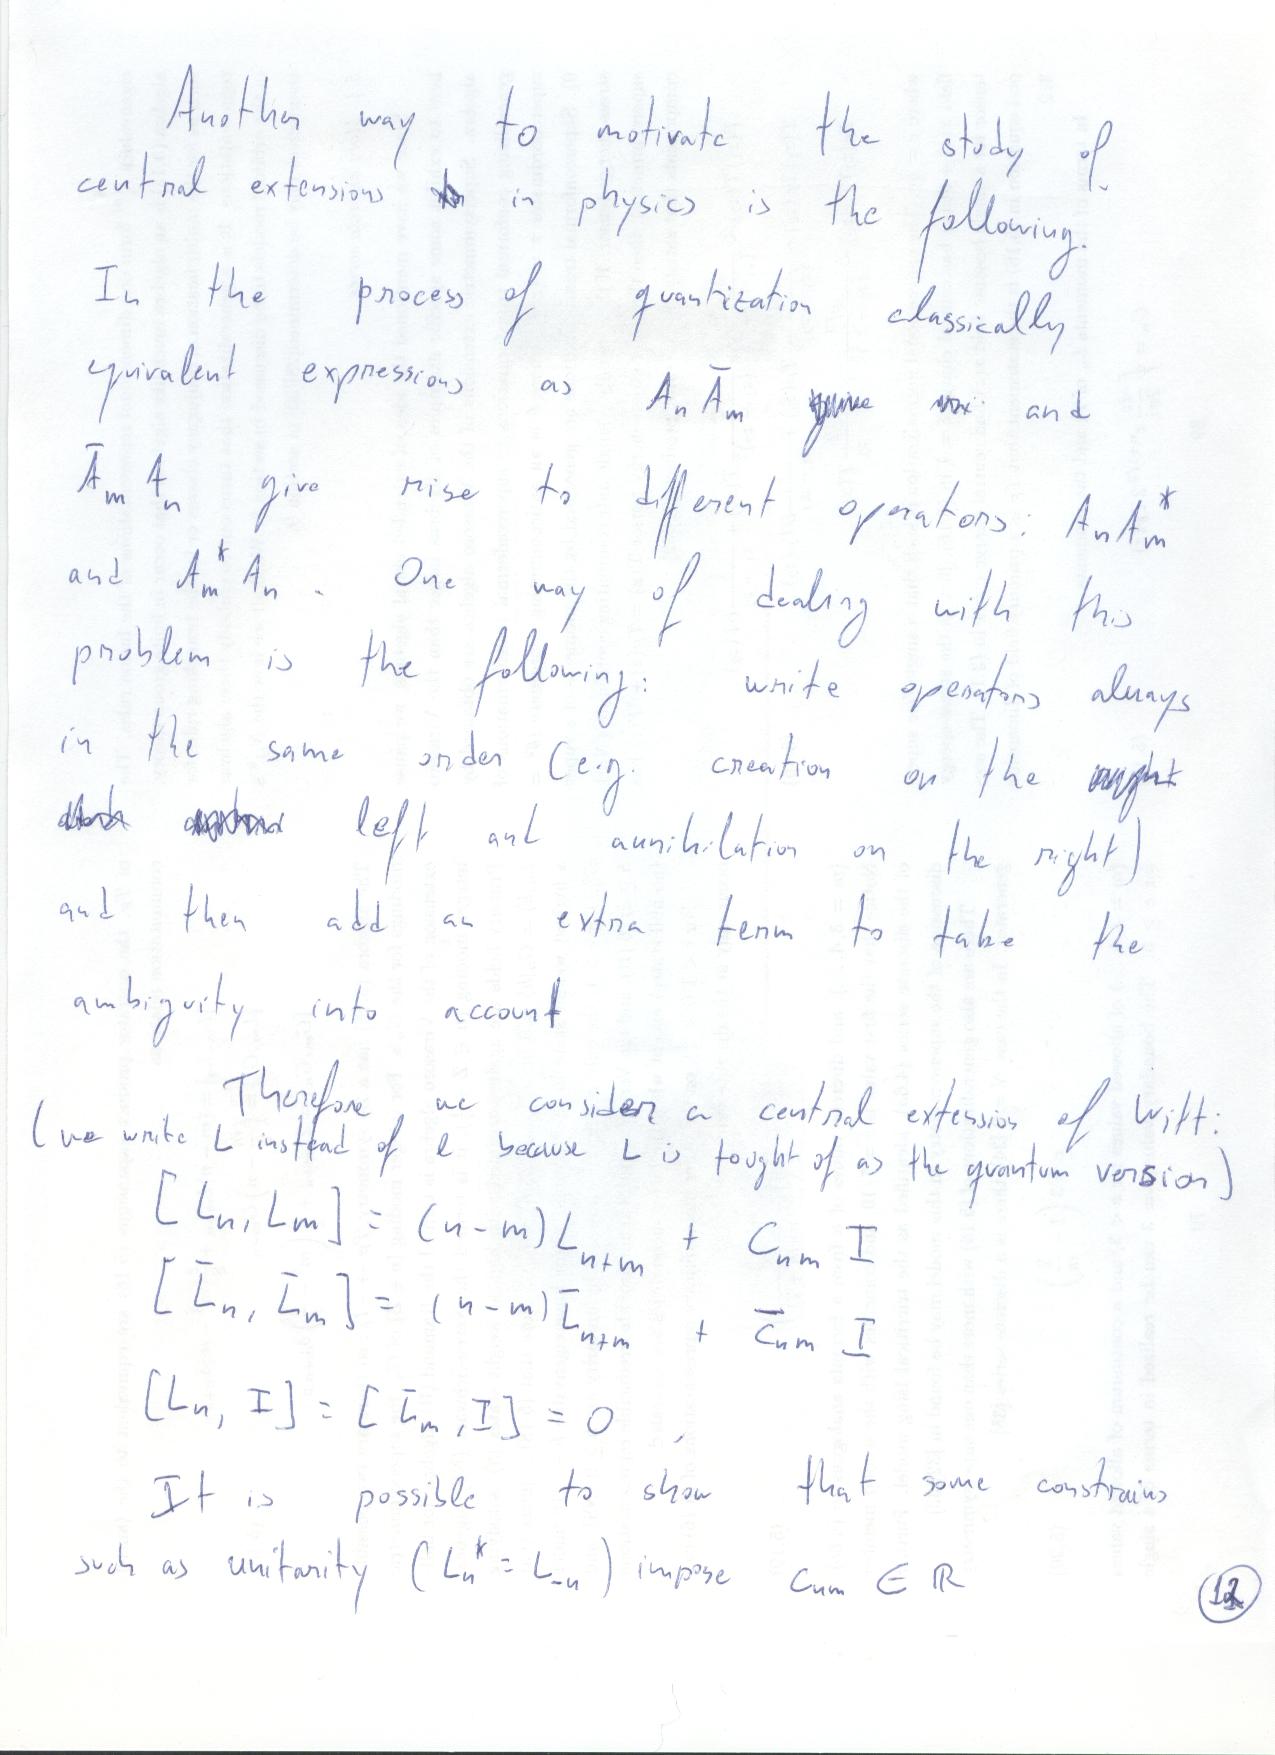 Another way to motivate the study of
central extensions in physics is the following.
In the process of quantization classically
equivalent expressions as AₙĀₘ and
ĀₘAₙ give rise to different operators: AₙAₘ*
and Aₘ*Aₙ. One way of dealing with this
problem is the following: write operators always
in the same order (e.g. creation on the
left and annihilation on the right)
and then add an extra term to take the
ambiguity into account
Therefore we consider a central extension of Witt:
(we write L instead of ℓ because L is tought of as the quantum version)
[Lₙ, Lₘ] = (n-m)Lₙ₊ₘ + Cₙₘ I
[L̄ₙ, L̄ₘ] = (n-m)L̄ₙ₊ₘ + C̄ₙₘ I
[Lₙ, I] = [L̄ₘ, I] = 0,
It is possible to show that some constrains
such as unitarity (Lₙ* = L₋ₙ) impose Cₙₘ ∈ ℝ
12